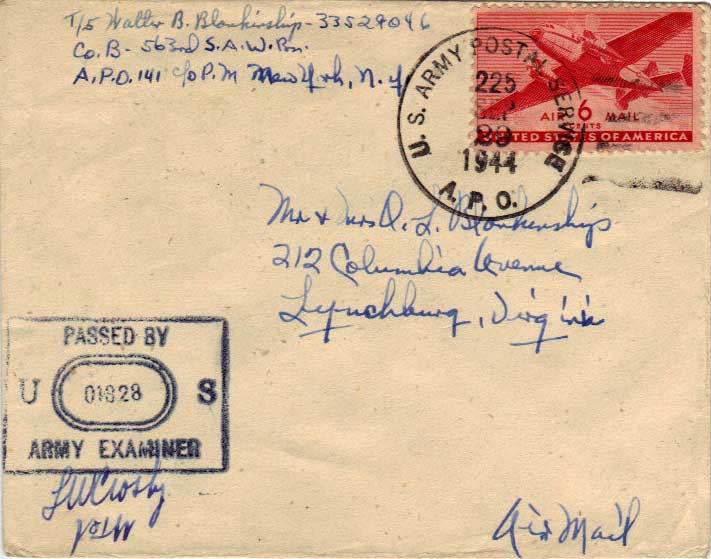 T/5 Walter B. Blankinship - 33529046
Co. B - 563rd S.A.W. Bn.
A.P.O. 141 c/o P.M New York, N.Y
U. S. ARMY POSTAL SERVICE
225
SEP
1944
A. P. O.
AIR 6 MAIL
CENTS
UNITED STATES OF AMERICA
Mr & Mrs O. L. Blankinship
212 Columbia Avenue
Lynchburg, Virginia
PASSED BY
U 01828 S
ARMY EXAMINER
Air Mail